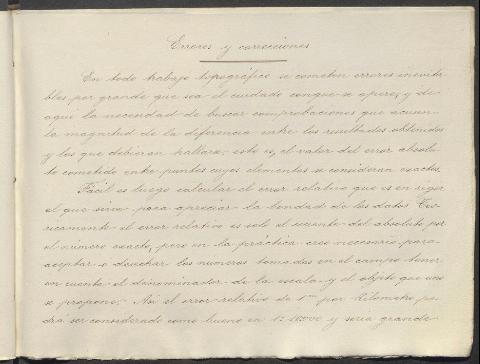 Errores y correcciones
En todo trabajo topográfico se cometen errores inevita-
bles por grande que sea el cuidado conque se opere, y de
aquí la necesidad de buscar comprobaciones que acusen
la magnitud de la diferencia entre los resultados obtenidos
y los que debieran hallarse; esto es, el valor del error absolu-
to cometido entre puntos cuyos elementos se consideran exactos.
Fácil es luego calcular el error relativo que es en rigor
el que sirve para apreciar la bondad de los datos. Teó-
ricamente el error relativo es solo el cociente del absoluto por
el número exacto, pero en la práctica creo necesario para
aceptar o desechar los números tomados en el campo tener
en cuenta el denominador de la escala y el objeto que uno
se propone. Así el error relativo de 1m por Kilómetro po-
drá ser considerado como bueno en 1: 10.000 y sería grande